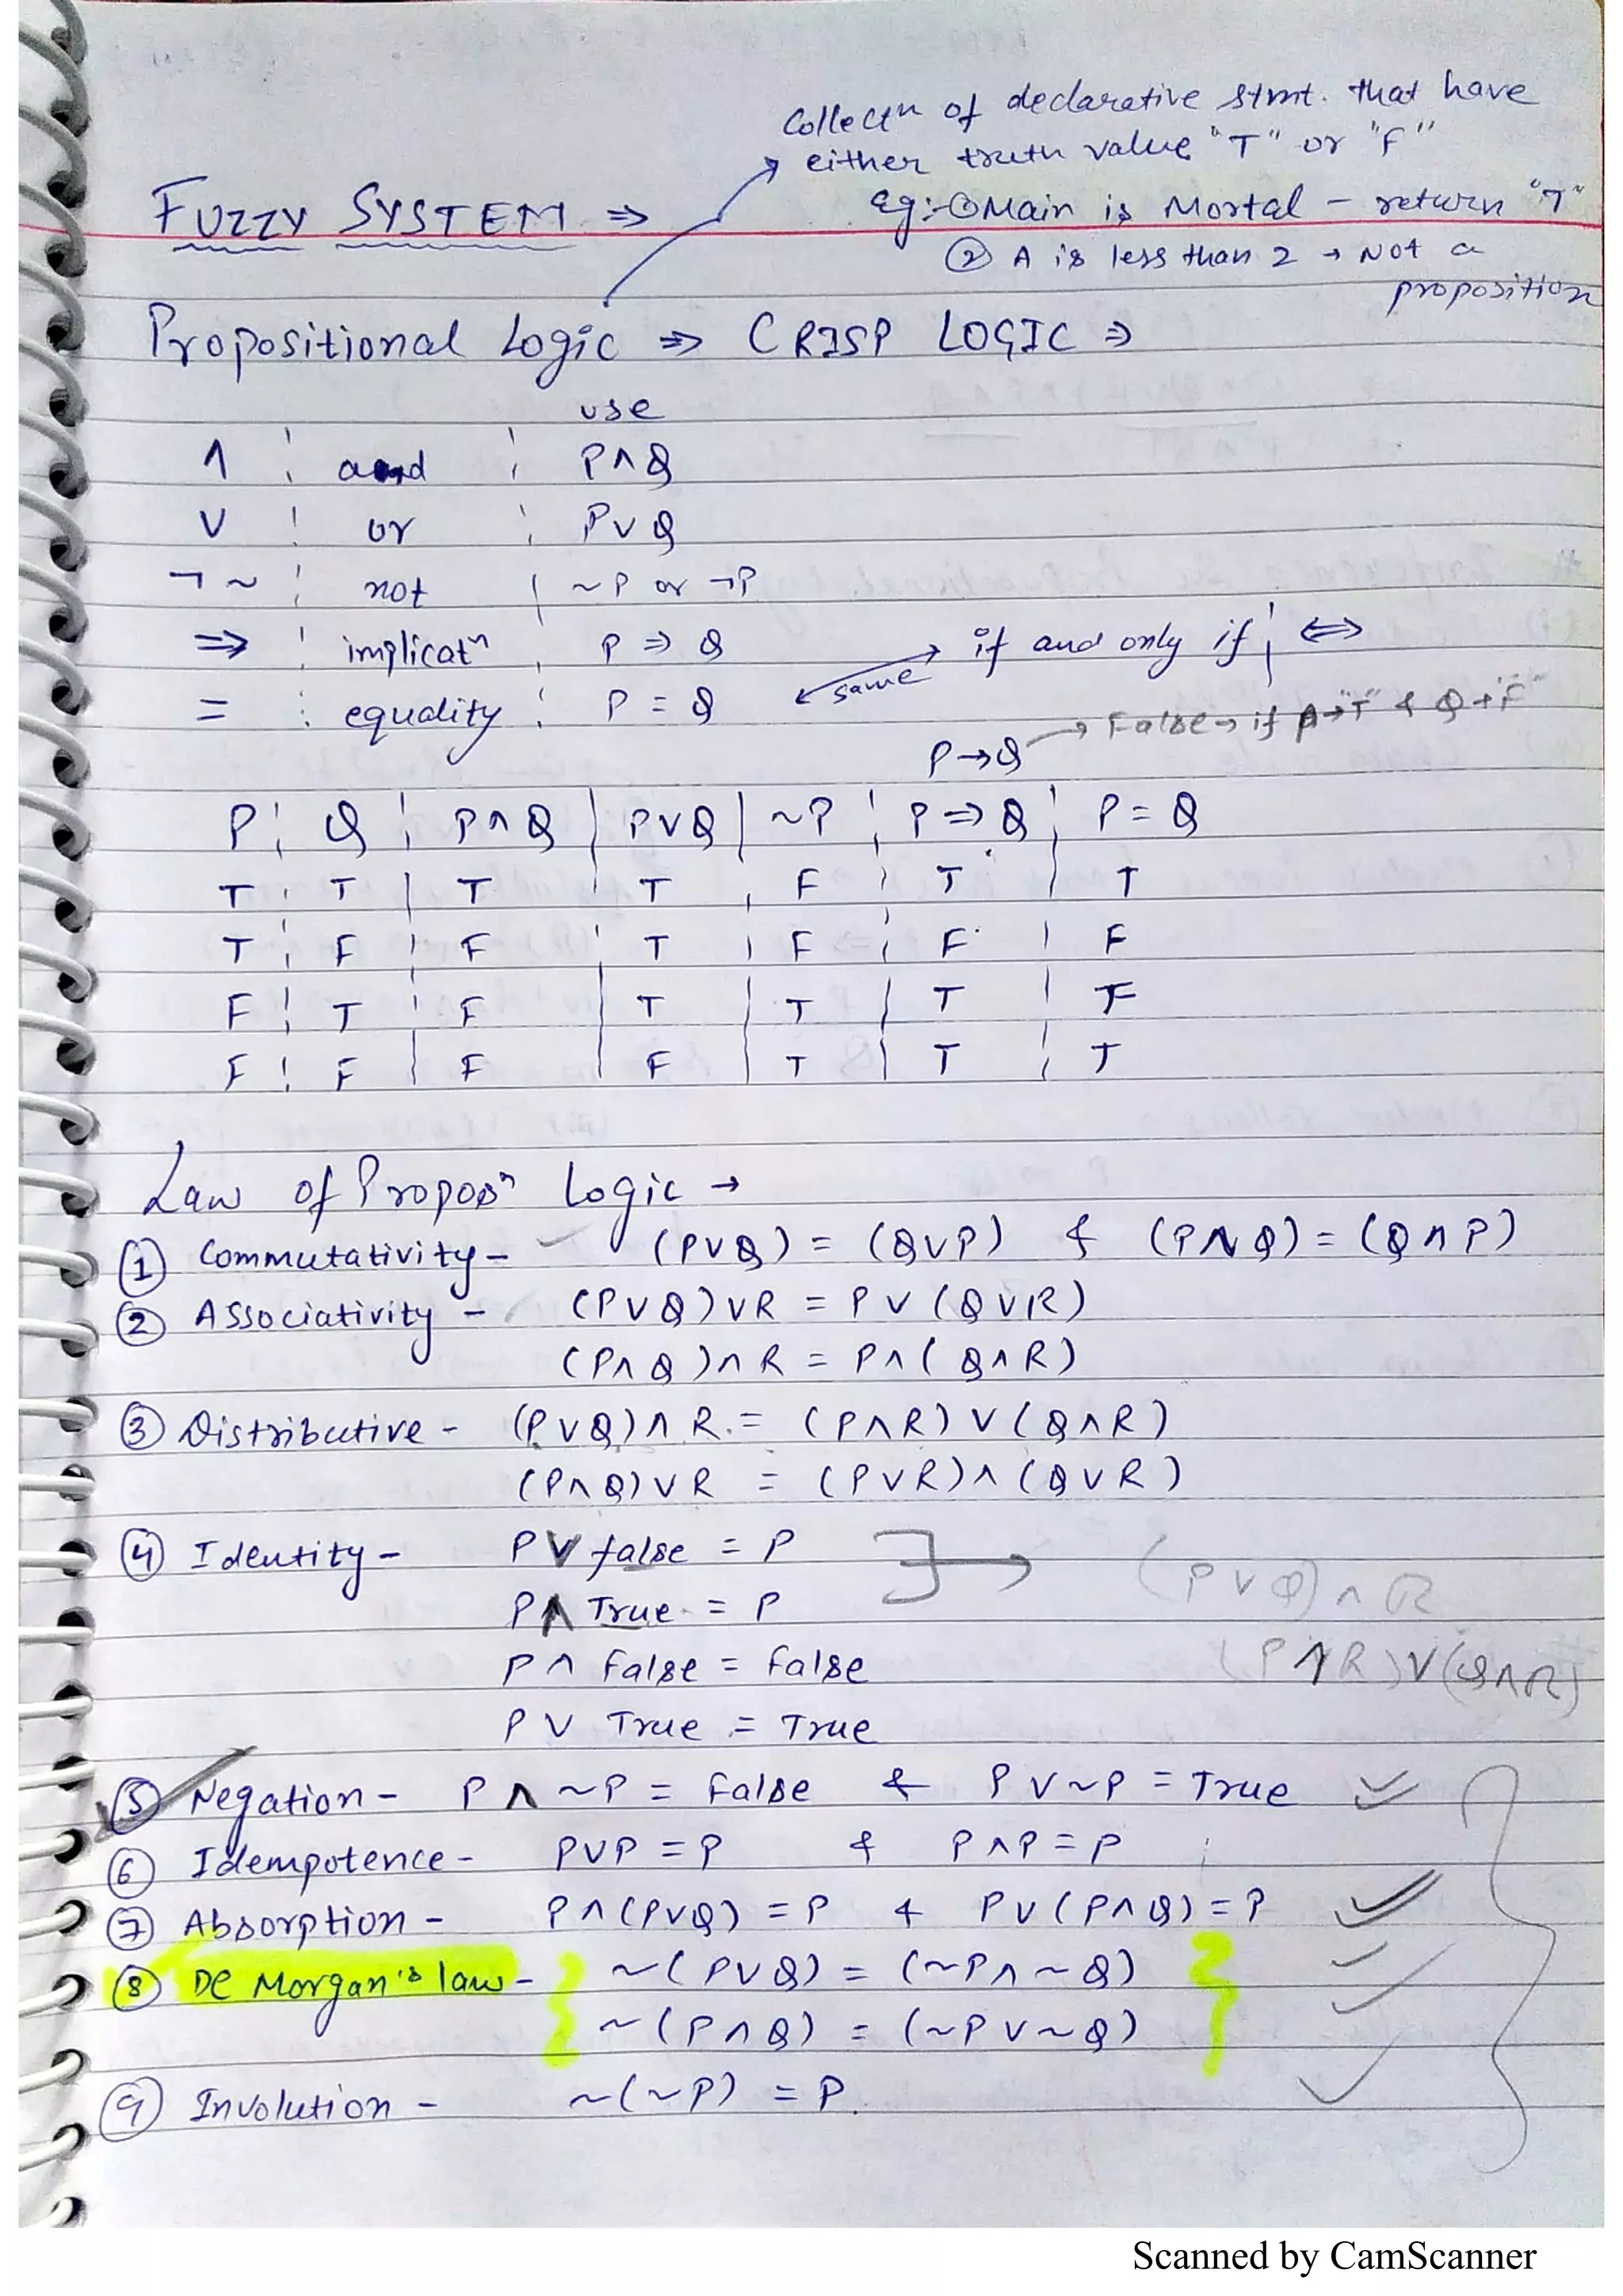 Collectn of declarative stmt. that have
either truth value "T" or "F"
FUZZY SYSTEM ⇒
Eg:- ① Main is Mortal - return "T"
② A is less than 2 → Not a
proposition
Propositional Logic ⇒ CRISP LOGIC ⇒
use
∧ and P∧Q
∨ or P∨Q
¬ ~ not ~P or ¬P
⇒ implicatn P ⇒ Q
if and only if ⇔
= equality P = Q
same
P→Q → False → if P→"T" & Q→"F"
P Q P∧Q P∨Q ~P P⇒Q P=Q
T T T T F T T
T F F T F F F
F T F T T T F
F F F F T T T
Law of Proposn Logic →
① Commutativity - (P∨Q) = (Q∨P) & (P∧Q) = (Q∧P)
② Associativity - (P∨Q)∨R = P∨(Q∨R)
(P∧Q)∧R = P∧(Q∧R)
③ Distributive - (P∨Q)∧R = (P∧R)∨(Q∧R)
(P∧Q)∨R = (P∨R)∧(Q∨R)
④ Identity - P∨false = P
(P∨Q)∧R
P∧True = P
P∧False = False
(P∧R)∨(Q∧R)
P∨True = True
⑤ Negation - P∧~P = False & P∨~P = True
⑥ Idempotence - P∨P = P & P∧P = P
⑦ Absorption - P∧(P∨Q) = P & P∨(P∧Q) = P
⑧ De Morgan's law - ~(P∨Q) = (~P∧~Q)
~(P∧Q) = (~P∨~Q)
⑨ Involution - ~(~P) = P.
Scanned by CamScanner